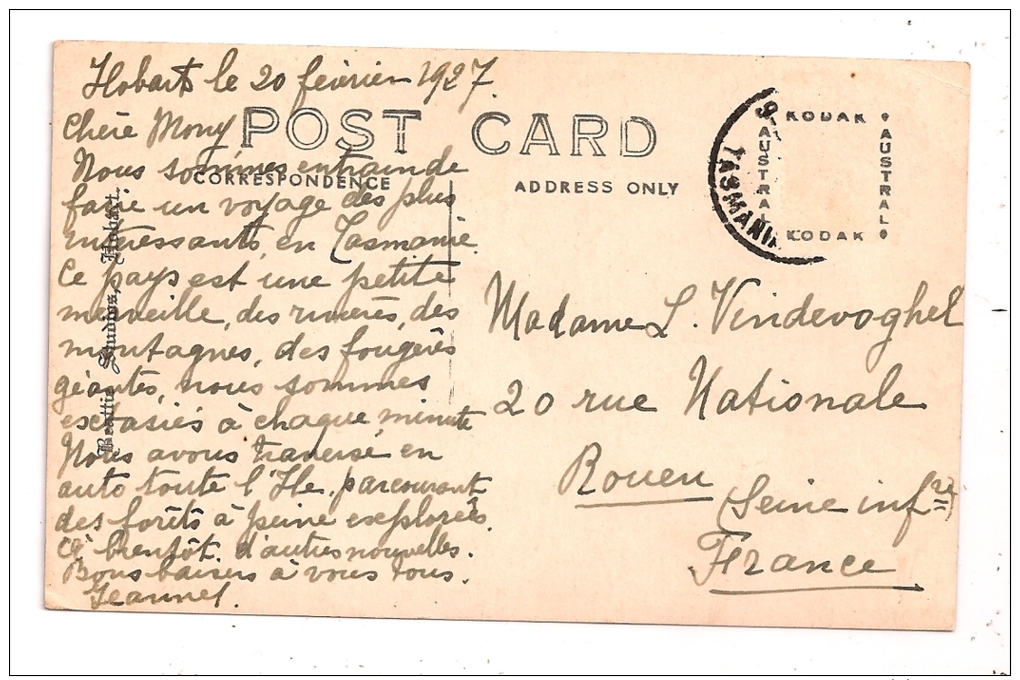 Hobart le 20 février 1927.
Chère Mony
POST CARD
Nous sommes entrain de
CORRESPONDENCE
ADDRESS ONLY
faire un voyage des plus
intéressants, en Tasmanie.
Ce pays est une petite
merveille, des rivières, des
montagnes, des fougères
géantes, nous sommes
extasiés à chaque minute
Nous avons traversé en
auto toute l'Ile, parcourant
des forêts à peine explorées.
à bientôt d'autres nouvelles.
Bons baisers à vous tous.
Jeannel.
Beattie Studios, Hobart.
Madame L. Vindevoghel
20 rue Nationale
Rouen
(Seine infre)
France
KODAK
AUSTRAL
AUSTRAL
KODAK
TASMANIA